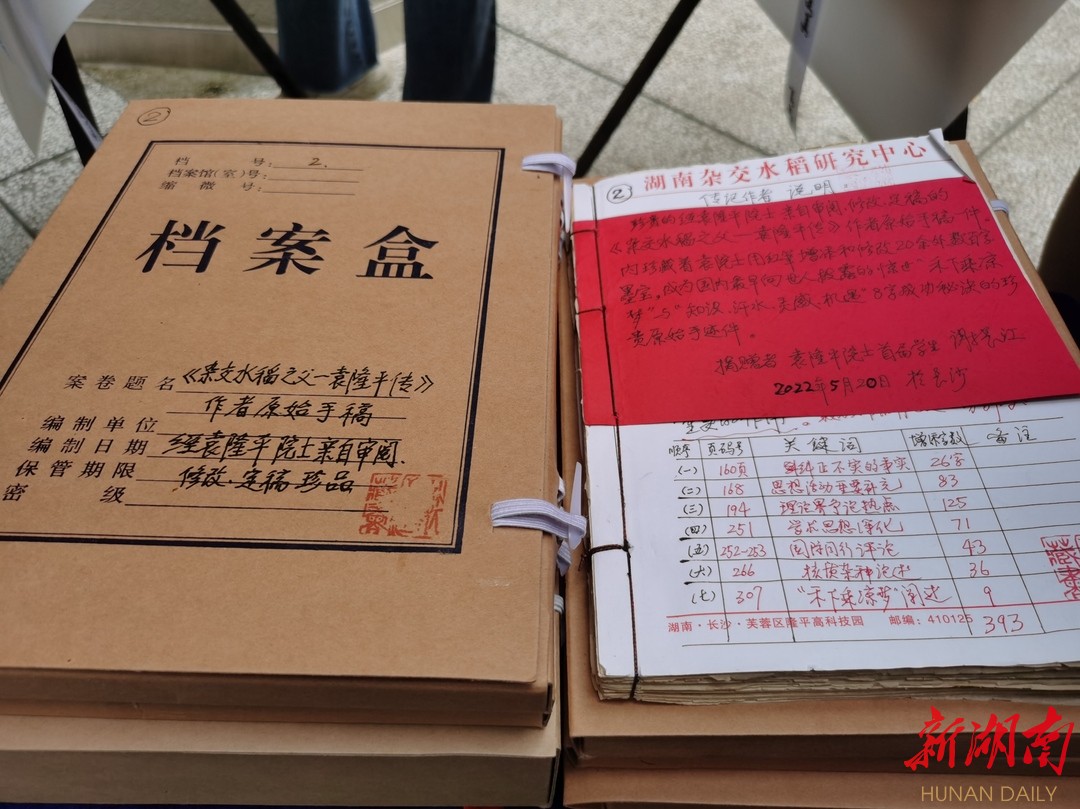 ②
档 号: 2.
档案馆(室)号:
缩 微 号:
档案盒
案卷题名 《杂交水稻之父—袁隆平传》
作者原始手稿
编制单位
编制日期 经袁隆平院士亲自审阅.
保管期限 修改.定稿珍品
密 级
② 湖南杂交水稻研究中心
传记作者 说明.
珍贵的经袁隆平院士亲自审阅.修改.定稿的
《杂交水稻之父—袁隆平传》作者原始手稿一件.
内珍藏着袁院士用红笔增添和修改20余处数百字
墨宝,成为国内最早向世人披露的 "禾下乘凉
梦"与"知识、汗水、灵感、机遇"8字成功秘诀的珍
贵原始手迹件.
捐赠者 袁隆平院士首届学生 谢长江
2022年5月20日 於长沙
顺序 页码号 关键词 增添字数 备注
(一) 160页 纠正不实的事实 26字
(二) 168 思想活动重要补充 83
(三) 194 理论界争论热点 125
(四) 251 学术思想深化 71
(五) 252-253 国际同行评论 43
(六) 266 核质杂种论述 36
(七) 307 "禾下乘凉梦"阐述 9
湖南·长沙·芙蓉区隆平高科技园 邮编: 410125 393
新湖南
HUNAN DAILY